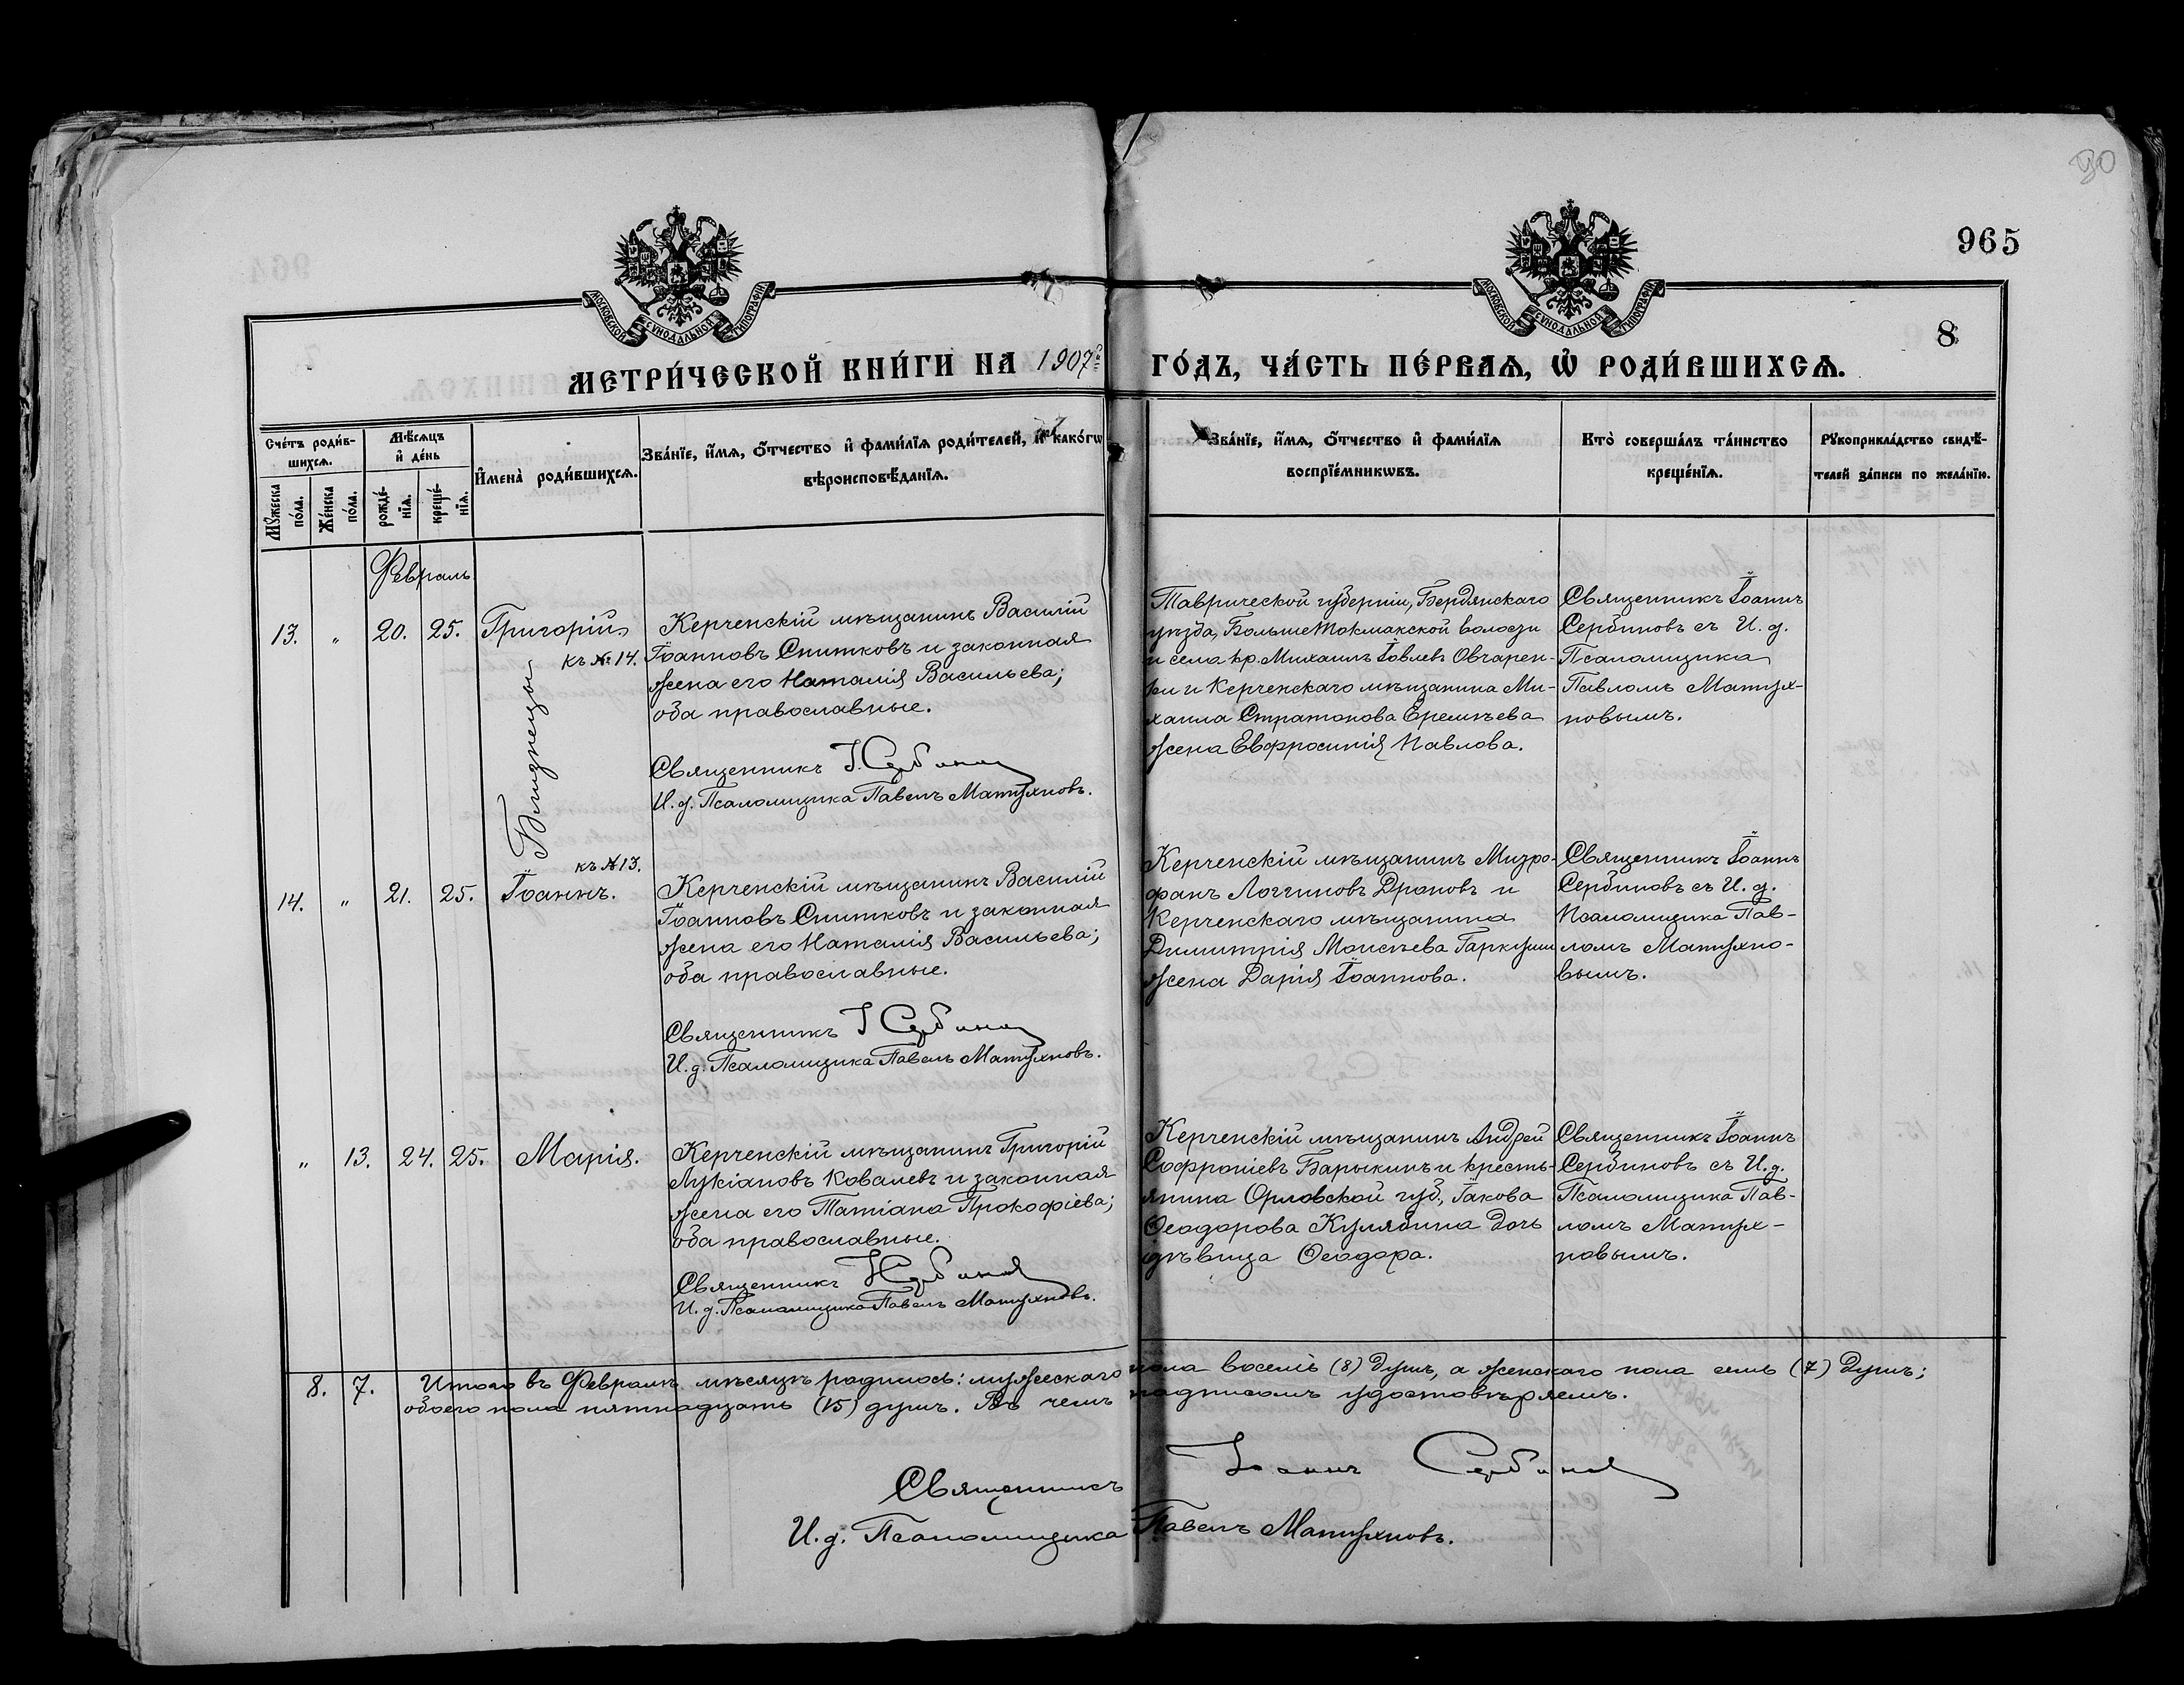 90
965
МОСКОВСКОЙ СѴНОДАЛЬНОЙ ТИПОГРАФІИ
МОСКОВСКОЙ СѴНОДАЛЬНОЙ ТИПОГРАФІИ
8
МЕТРИ́ЧЕСКОЙ КНИ́ГИ НА 1907й ГО́ДЪ, ЧА́СТЬ ПЕ́РВАѦ, Ѽ РОДИ́ВШИХСѦ.
Сче́тъ роди́в-
шихсѧ.
Мꙋ́жеска по́ла.
Же́нска по́ла.
Мѣ́сѧцъ и҆ де́нь
рожде́-
нїѧ.
креще́-
нїѧ.
И҆мена̀ роди́вшихсѧ.
Зва́нїе, и҆́мѧ, ѻ҆́тчество и҆ фами́лїѧ роди́телей, и҆ како́гѡ
вѣроисповѣ́данїѧ.
Зва́нїе, и҆́мѧ, ѻ҆́тчество и҆ фами́лїѧ
воспрїе́мникѡвъ.
Кто̀ соверша́лъ та́инство
креще́нїѧ.
Рꙋкоприкла́дство свидѣ́-
телей за́писи по жела́нїю.
Февраль
13. " 20. 25. Григорій
къ №14.
Керченскій мѣщанинъ Василій
Іоанновъ Снитковъ и законная
жена его Наталія Васильева;
оба православные.
Священникъ І. Сербинов
И. д. Псаломщика Павелъ Матухновъ.
Таврической губерніи, Бердянскаго
уѣзда, Больше Токмакской волости
и села кр. Михаилъ Іовлевъ Овчарен-
ки и Керченскаго мѣщанина Ми-
хаила Стратонова Еремѣева
жена Евфросинія Павлова.
Священникъ Іоаннъ
Сербиновъ съ И. д.
Псаломщика
Павломъ Матух-
новымъ.
Близнецы
къ №13.
14. " 21. 25. Іоаннъ.
Керченскій мѣщанинъ Василій
Іоанновъ Снитковъ и законная
жена его Наталія Васильева;
оба православные.
Священникъ І Сербинов
И. д. Псаломщика Павелъ Матухновъ.
Керченскій мѣщанинъ Митро-
фанъ Логгиновъ Дроновъ и
Керченскаго мѣщанина
Димитрія Моисѣева Гаркуши
жена Дарія Іоаннова.
Священникъ Іоаннъ
Сербиновъ съ И. д.
Псаломщика Пав-
ломъ Матухно-
вымъ.
" 13. 24. 25. Марія.
Керченскій мѣщанинъ Григорій
Лукіановъ Ковалевъ и законная
жена его Татіана Прокофіева;
оба православные.
Священникъ І Сербинов
И. д. Псаломщика Павелъ Матухновъ.
Керченскій мѣщанинъ Андрей
Софроніевъ Барыкинъ и кресть-
янина Орловской губ., Іакова
Ѳеодорова Кулябина дочь
дѣвица Ѳеодора.
Священникъ Іоаннъ
Сербиновъ съ И. д.
Псаломщика Пав-
ломъ Матух-
новымъ.
8. 7. Итого въ Февралѣ мѣсяцѣ родилось: мужескаго пола восемь (8) душъ, а женскаго пола семь (7) душъ;
обоего пола пятнадцать (15) душъ. Въ чемъ подписомъ удостовѣряемъ.
Священникъ Іоаннъ Сербинов
И. д. Псаломщика Павелъ Матухновъ.